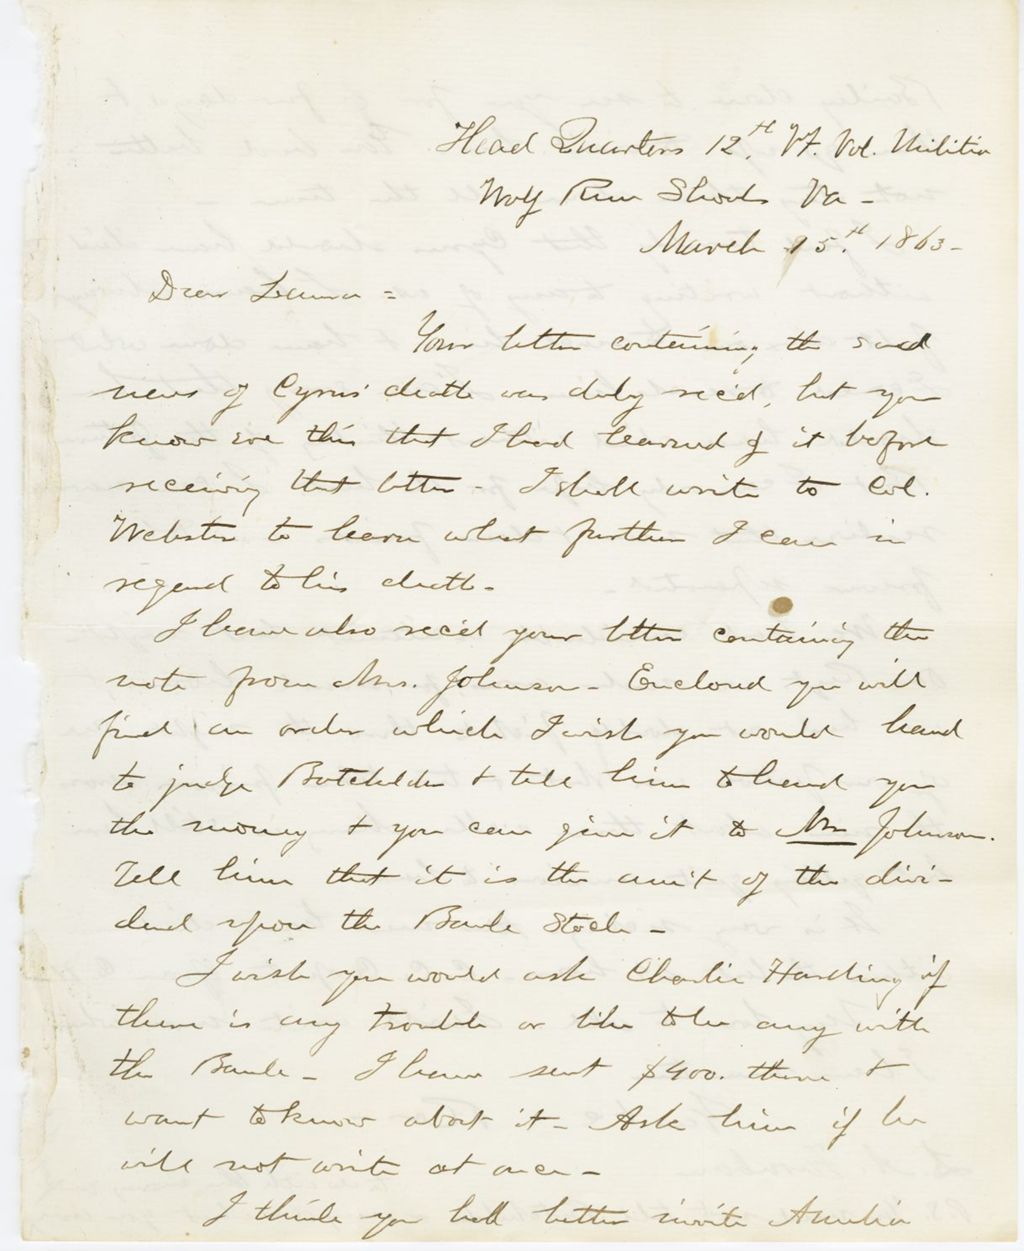 Head Quarters 12.th Vt. Vol. Militia
Wolf Run Shoals Va -
March 15.th 1863 -
Dear Laura =
Your letter containing the sad
news of Cyrus' death was duly rec'd, but you
know ere this that I had learned of it before
receiving that letter - I shall write to Col.
Webster to learn what further I can in
regard to his death -
I have also rec'd your letter containing the
note from Mrs. Johnson - Enclosed you will
find an order which I wish you would hand
to judge Batchelder & tell him to hand you
the money & you can give it to Mrs Johnson.
Tell him that it is the am't of the divi-
dend upon the Bank Stock -
I wish you would ask Charlie Harding if
there is any trouble or like to be any with
the Bank - I have sent $400. there &
want to know about it - Ask him if he
will not write at once -
I think you had better invite Amelia